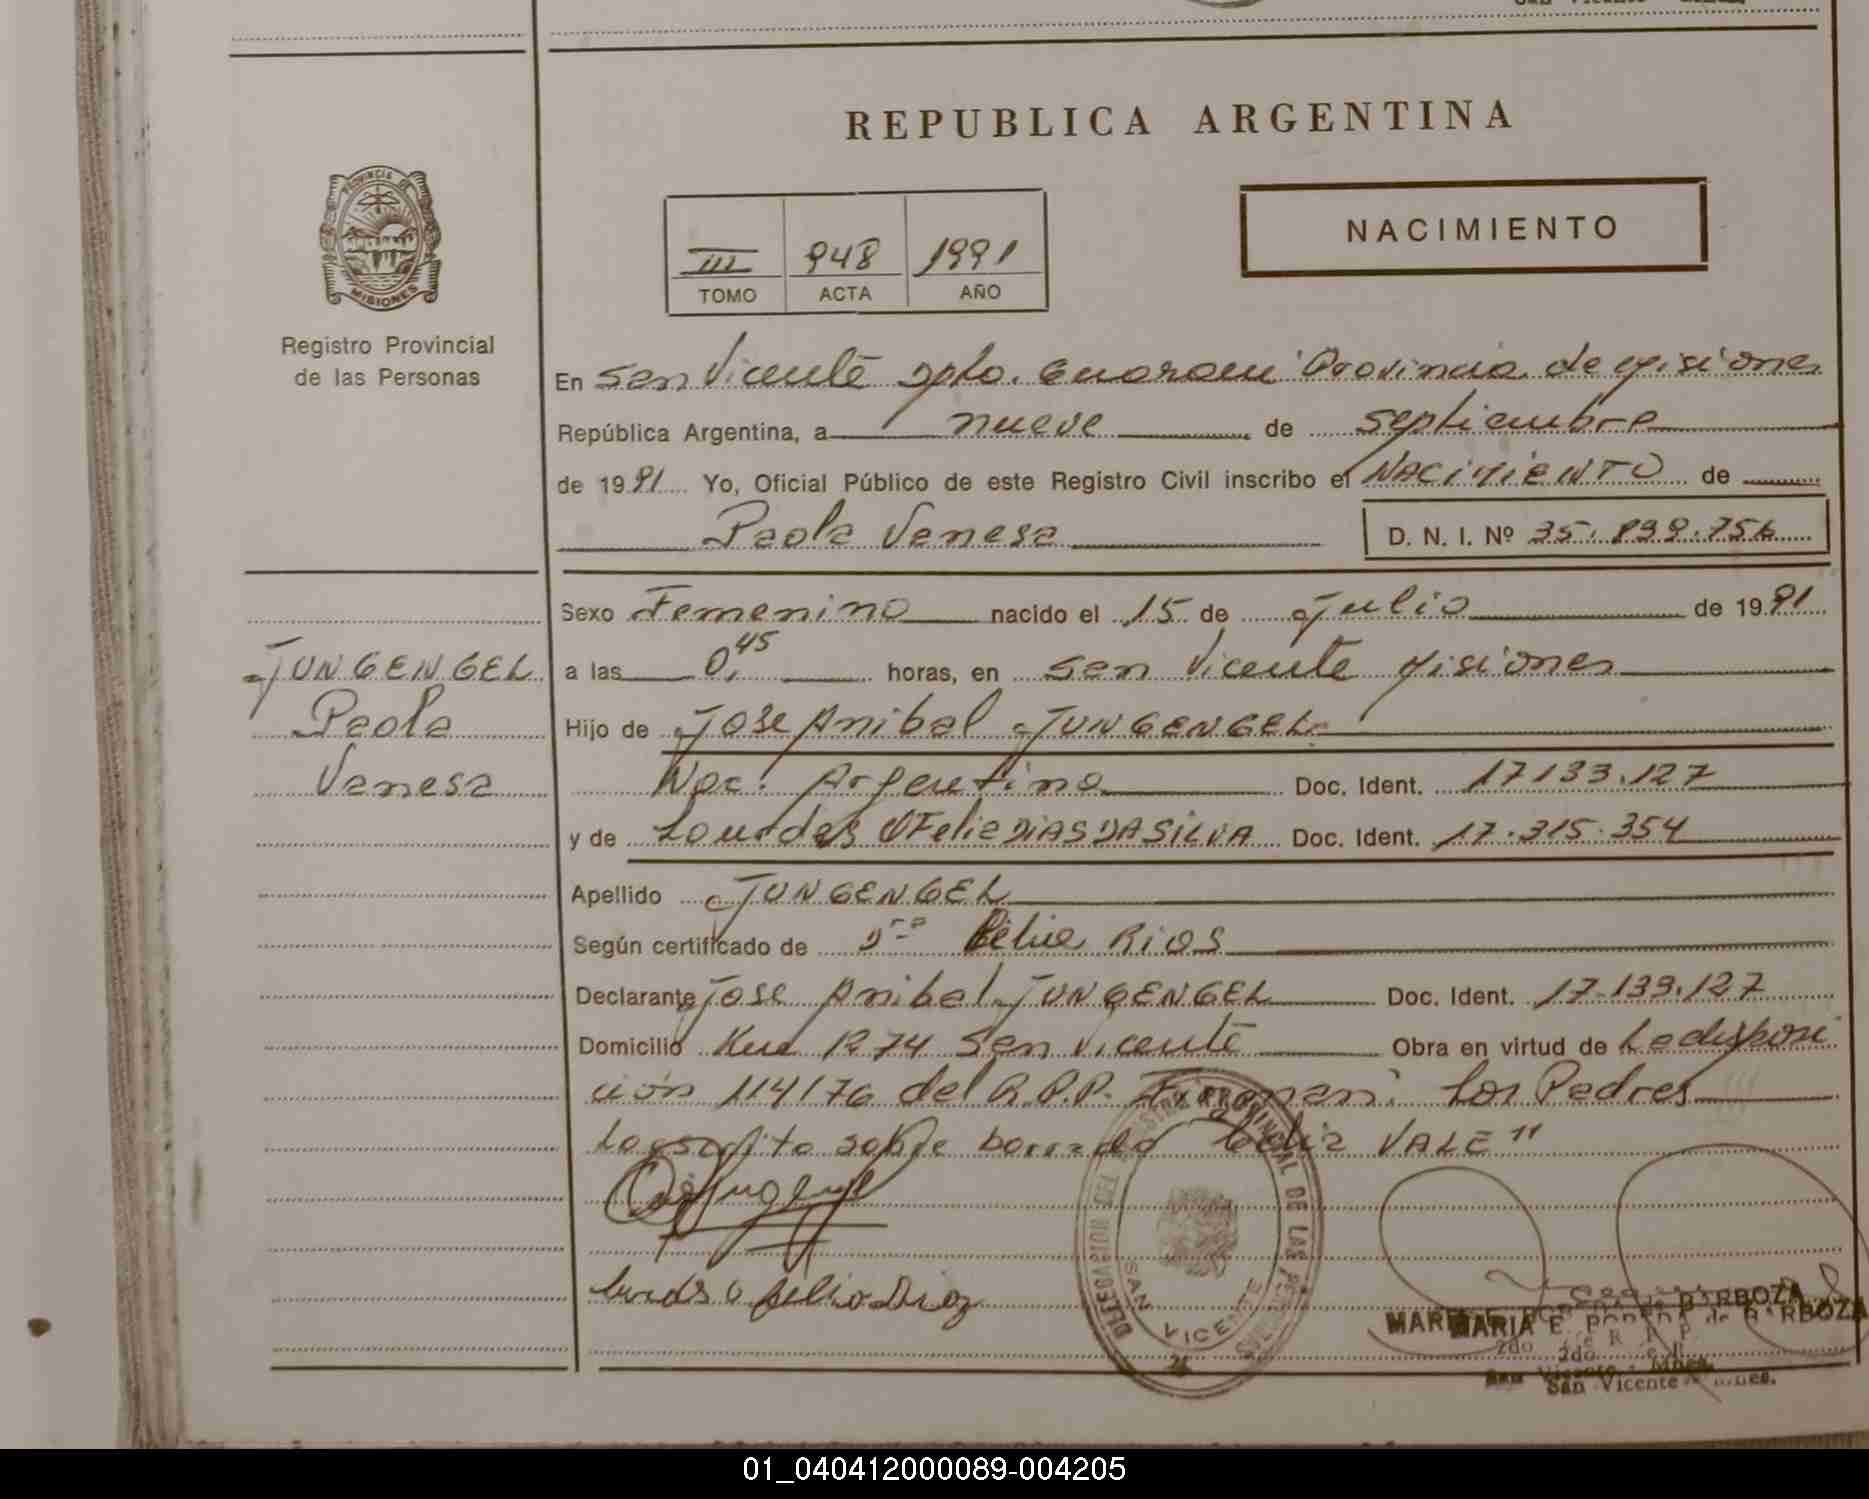 REPUBLICA ARGENTINA
PROVINCIA DE
MISIONES
Registro Provincial
de las Personas
III 948 1991
TOMO ACTA AÑO
NACIMIENTO
En San Vicente Dpto. Guarani Provincia de Misiones
República Argentina, a nueve de septiembre
de 1991 Yo, Oficial Público de este Registro Civil inscribo el NACIMIENTO de
Paola Vanesa D. N. I. Nº 35.899.756
JUNGENGEL
Paola
Vanesa
Sexo Femenino nacido el 15 de Julio de 1991
a las 0,45 horas, en San Vicente Misiones
Hijo de Jose Anibal JUNGENGEL
Nac. Argentino Doc. Ident. 17133.127
y de Lourdes Ofelia DIAS DA SILVA Doc. Ident. 17.315.354
Apellido JUNGENGEL
Según certificado de Dra Rios
Declarante Jose Anibal JUNGENGEL Doc. Ident. 17.133.127
Domicilio Km 1274 San Vicente Obra en virtud de La disposi
ción 114/76 del R.P.P. Firman: Los Padres
Lo escrito sobre borrado VALE"
PROVINCIAL DE LAS
SAN VICENTE
MARIA E. de BARBOZA
San Vicente
01_040412000089-004205